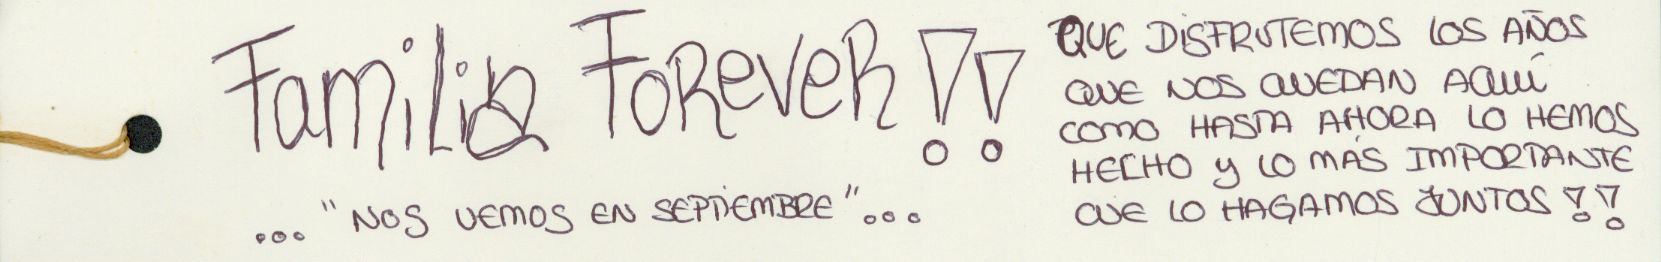 Familia Forever!!
... "NOS VEMOS EN SEPTIEMBRE"...
QUE DISFRUTEMOS LOS AÑOS
QUE NOS QUEDAN AQUÍ
COMO HASTA AHORA LO HEMOS
HECHO Y LO MÁS IMPORTANTE
QUE LO HAGAMOS JUNTOS!!